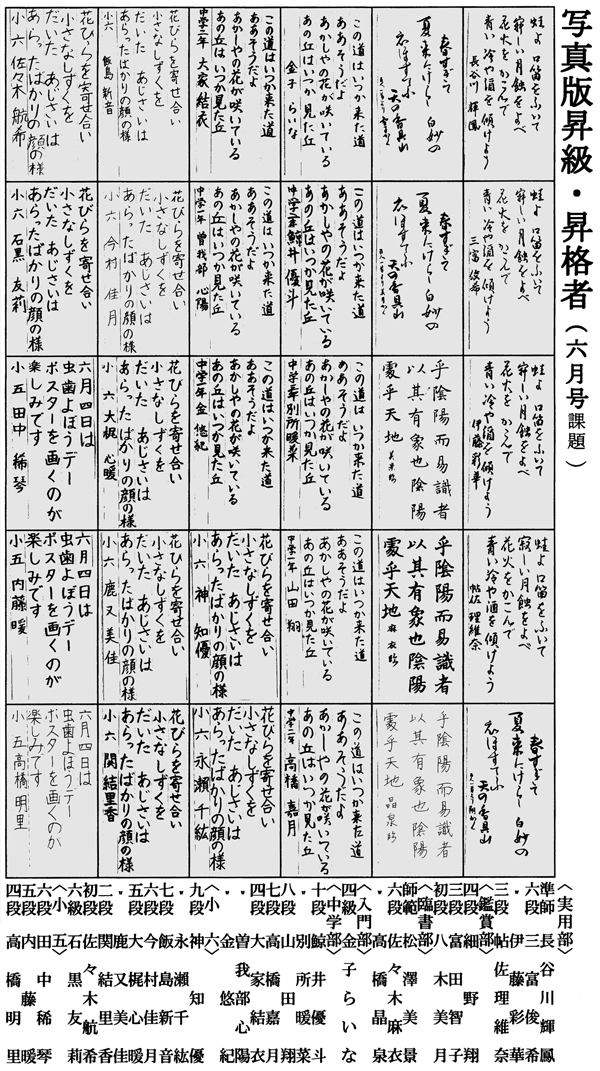 写真版昇級・昇格者（六月号課題）
蛙よ 口笛をふいて
寂しい月蝕をよべ
花火をかこんで
青い冷や酒を傾けよう
長谷川 輝鳳
春すぎて
夏来にけらし 白妙の
衣ほすてふ
天の香具山
この道はいつか来た道
ああそうだよ
あかしやの花が咲いている
あの丘はいつか見た丘
金子 らいな
この道はいつか来た道
ああそうだよ
あかしやの花が咲いている
あの丘はいつか見た丘
中学二年 大家 結衣
花びらを寄せ合い
小さなしずくを
だいた あじさいは
あらったばかりの顔の様
小六 飯島 新音
花びらを寄せ合い
小さなしずくを
だいた あじさいは
あらったばかりの顔の様
小六 佐々木 航希
蛙よ 口笛をふいて
寂しい月蝕をよべ
花火をかこんで
青い冷や酒を傾けよう
三富 俊希
春すぎて
夏来にけらし 白妙の
衣ほすてふ
天の香具山
この道はいつか来た道
ああそうだよ
あかしやの花が咲いている
あの丘はいつか見た丘
鯨井 優斗
この道はいつか来た道
ああそうだよ
あかしやの花が咲いている
あの丘はいつか見た丘
曽我部 心陽
花びらを寄せ合い
小さなしずくを
だいた あじさいは
あらったばかりの顔の様
小六 今村 佳月
花びらを寄せ合い
小さなしずくを
だいた あじさいは
あらったばかりの顔の様
小六 石黒 友莉
蛙よ 口笛をふいて
寂しい月蝕をよべ
花火をかこんで
青い冷や酒を傾けよう
伊藤彩華
乎陰陽而易識者
以其有象也陰陽
處乎天地 美景臨
この道はいつか来た道
ああそうだよ
あかしやの花が咲いている
あの丘はいつか見た丘
別所暖菜
この道はいつか来た道
ああそうだよ
あかしやの花が咲いている
あの丘はいつか見た丘
金 悠紀
花びらを寄せ合い
小さなしずくを
だいた あじさいは
あらったばかりの顔の様
小六 大梶 心暖
六月四日は
虫歯よぼうデー
ポスターを画くのが
楽しみです
小五 田中 稀琴
蛙よ 口笛を ふいて
寂しい月蝕をよべ
花火をかこんで
青い冷や酒を傾けよう
帖佐 理維奈
乎陰陽而易識者
以其有象也陰陽
處乎天地 麻衣臨
この道はいつか来た道
ああそうだよ
あかしやの花が咲いている
あの丘はいつか見た丘
山田 翔
花びらを寄せ合い
小さなしずくを
だいた あじさいは
あらったばかりの顔の様
小六 神 知優
花びらを寄せ合い
小さなしずくを
だいた あじさいは
あらったばかりの顔の様
小六 鹿又 美佳
六月四日は
虫歯よぼうデー
ポスターを画くのが
楽しみです
小五 内藤 暖
春すぎて
夏来にけらし 白妙の
衣ほすてふ
天の香具山
乎陰陽而易識者
以其有象也陰陽
處乎天地 晶泉臨
この道はいつか来た道
ああそうだよ
あかしやの花が咲いている
あの丘はいつか見た丘
高橋 嘉月
花びらを寄せ合い
小さなしずくを
だいた あじさいは
あらったばかりの顔の様
小六 永瀬 千紘
花びらを寄せ合い
小さなしずくを
だいた あじさいは
あらったばかりの顔の様
小六 関 結里香
六月四日は
虫歯よぼうデー
ポスターを画くのが
楽しみです
小五 高橋 明里
〈実用部〉
準師 長谷川輝鳳
六段 三富俊希
〃 伊藤彩華
三段 帖佐理維奈
〈鑑賞部〉
四段 細野翔
三段 富田智子
初段 八木美月
〈臨書部〉
師範 松澤美景
六段 佐々木麻衣
〃 高橋晶泉
〈入門部〉
四級 金子らいな
〈中学部〉
十段 鯨井優斗
〃 別所暖菜
八段 山田翔
七段 高橋嘉月
四段 大家結衣
〃 曽我部心陽
〃 金悠紀
〈小六〉
九段 神知優
〃 永瀬千紘
七段 飯島新音
六段 今村佳月
五段 大梶心暖
〃 鹿又美佳
二段 関結里香
初段 佐々木航希
六級 石黒友莉
〈小五〉
六段 田中稀琴
五段 内藤暖
四段 高橋明里